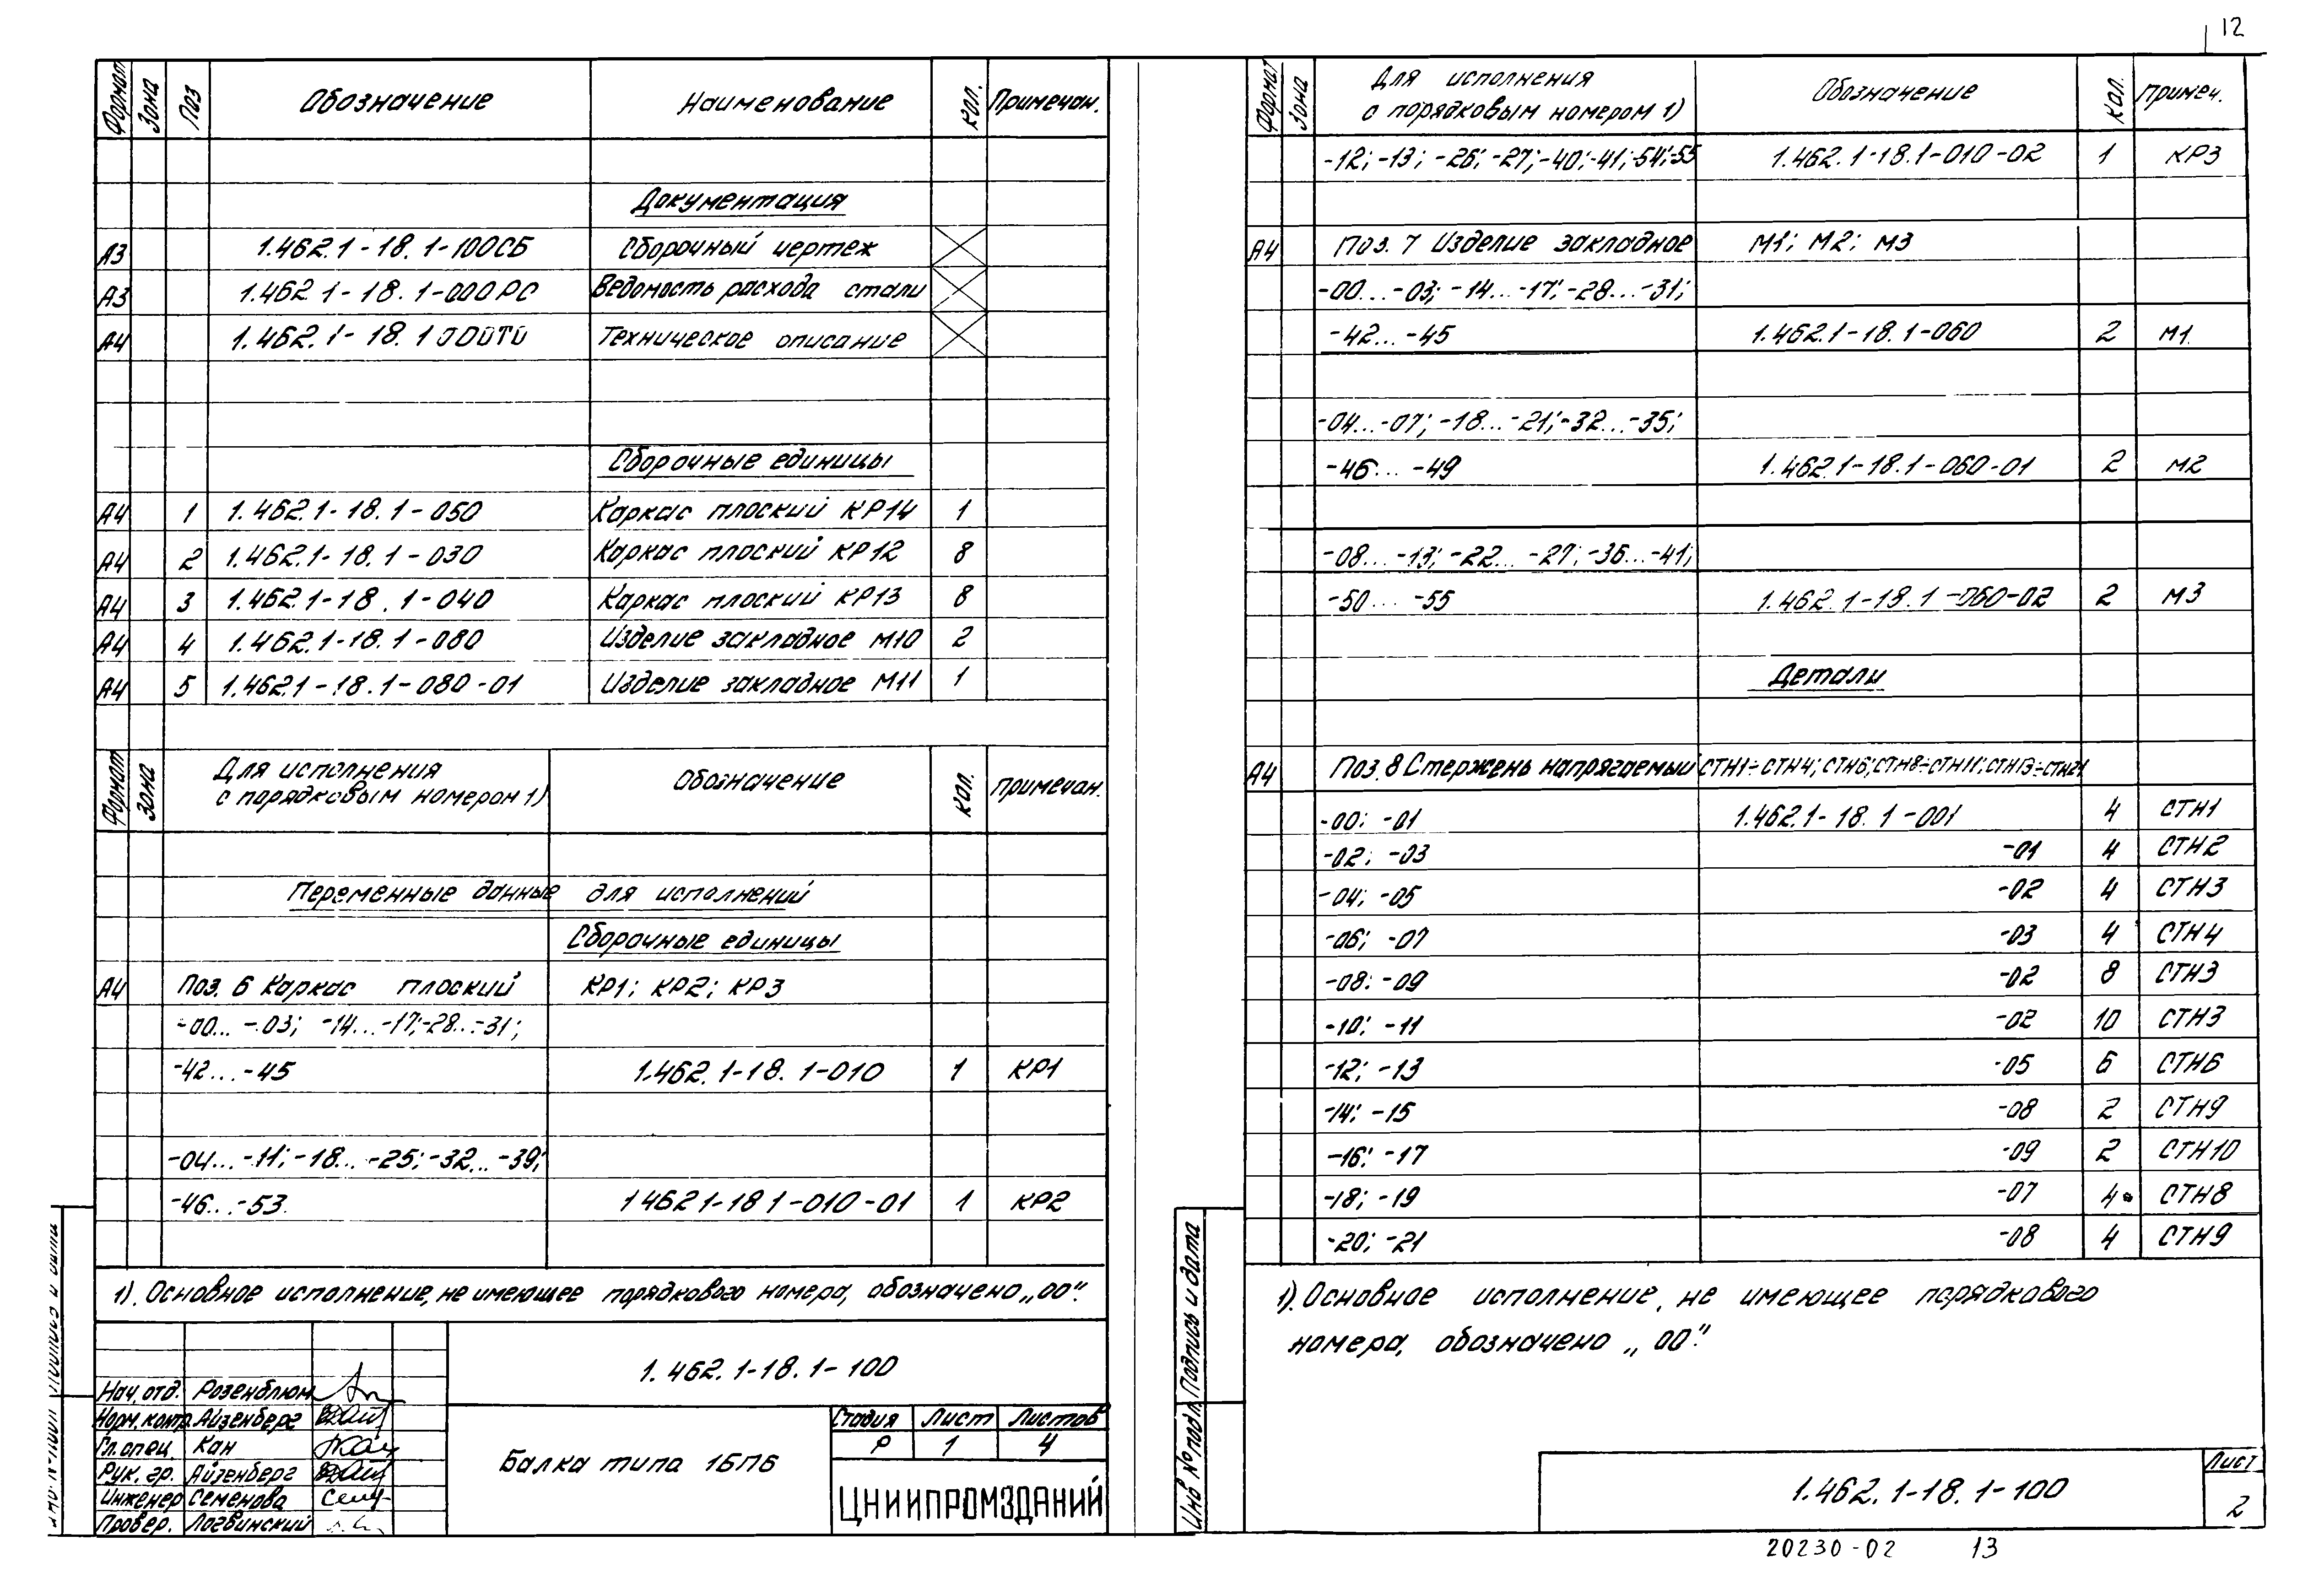 12
Формат Зона Поз Обозначение Наименование Кол. Примечан.
Документация
А3 1.462.1-18.1-100СБ Сборочный чертеж
А3 1.462 1-18.1-000РС Ведомость расхода стали
А4 1.462.1-18.1 000ТО Техническое описание
Сборочные единицы
А4 1 1.462.1-18.1-050 Каркас плоский КР14 1
А4 2 1.462.1-18.1-030 Каркас плоский КР12 8
А4 3 1.462.1-18.1-040 Каркас плоский КР13 8
А4 4 1.462.1-18.1-080 Изделие закладное М10 2
А4 5 1.462.1-18.1-080-01 Изделие закладное М11 1
Формат Зона Для исполнения с порядковым номером 1) Обозначение Кол. Примечан.
Переменные данные для исполнений
Сборочные единицы
А4 Поз. 6 Каркас плоский КР1; КР2; КР3
-00... -03; -14...-17; -28...-31;
-42...-45 1.462.1-18.1-010 1 КР1
-04...-11; -18...-25; -32...-39;
-46...-53. 1 462 1-18 1-010-01 1 КР2
1). Основное исполнение, не имеющее порядкового номера, обозначено „00".
1.462.1-18.1-100
Нач. отд. Розенблюм
Норм. контр. Айзенберг
Гл. спец. Кан
Рук. гр. Айзенберг
Инженер Семенова
Провер. Логвинский
Балка типа 1БП6
Стадия Лист Листов
Р 1 4
ЦНИИПРОМЗДАНИЙ
Формат Зона Для исполнения с порядковым номером 1) Обозначение Кол. Примеч.
-12; -13; -26; -27; -40; -41; -54; -55 1.462.1-18.1-010-02 1 КР3
А4 Поз. 7 Изделие закладное М1; М2; М3
-00...-03; -14...-17; -28...-31;
-42...-45 1.462.1-18.1-060 2 М1.
-04...-07; -18...-21; -32...-35;
-46...-49 1.462.1-18.1-060-01 2 М2
-08...-13; -22...-27; -36...-41;
-50...-55 1.462.1-18.1-060-02 2 М3
Детали
А4 Поз. 8 Стержень напрягаемый СТН1÷СТН4; СТН6; СТН8÷СТН11; СТН13÷СТН21
-00; -01 1.462.1-18.1-001 4 СТН1
-02; -03 -01 4 СТН2
-04; -05 -02 4 СТН3
-06; -07 -03 4 СТН4
-08; -09 -02 8 СТН3
-10; -11 -02 10 СТН3
-12; -13 -05 6 СТН6
-14; -15 -08 2 СТН9
-16; -17 -09 2 СТН10
-18; -19 -07 4 СТН8
-20; -21 -08 4 СТН9
1). Основное исполнение, не имеющее порядкового
номера, обозначено „00".
Инв № подл. Подпись и дата
1.462.1-18.1-100
Лист
2
20230-02 13